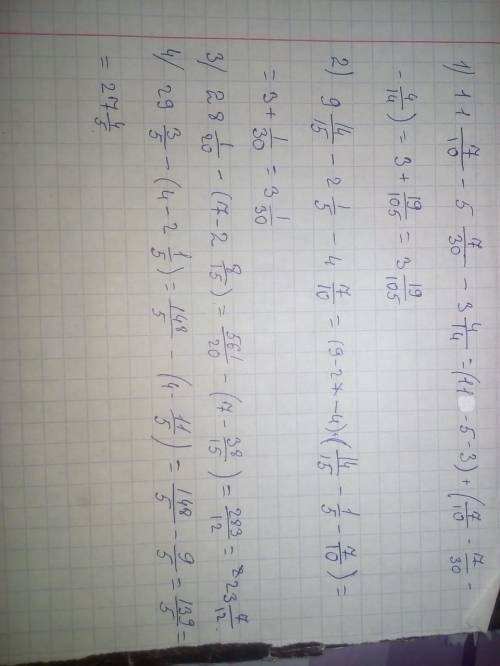 1) 11 7/10 - 5 7/30 - 3 4/14 = (11 - 5 - 3) + (7/10 - 7/30 -
- 4/14) = 3 + 19/105 = 3 19/105
2) 9 14/15 - 2 1/5 - 4 7/10 = (9 - 2 - 4) + (14/15 - 1/5 - 7/10) =
= 3 + 1/30 = 3 1/30
3) 28 1/20 - (7 - 2 8/15) = 561/20 - (7 - 38/15) = 283/12 = 23 7/12.
4) 29 3/5 - (4 - 2 1/5) = 148/5 - (4 - 11/5) = 148/5 - 9/5 = 139/5 =
= 27 4/5